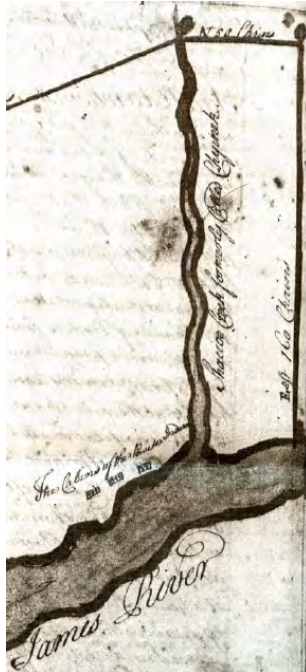 N 50 Chains
Shaccoe Creek formerly Chyinek
East 160 Chains
The Cabins of the Indians
James River